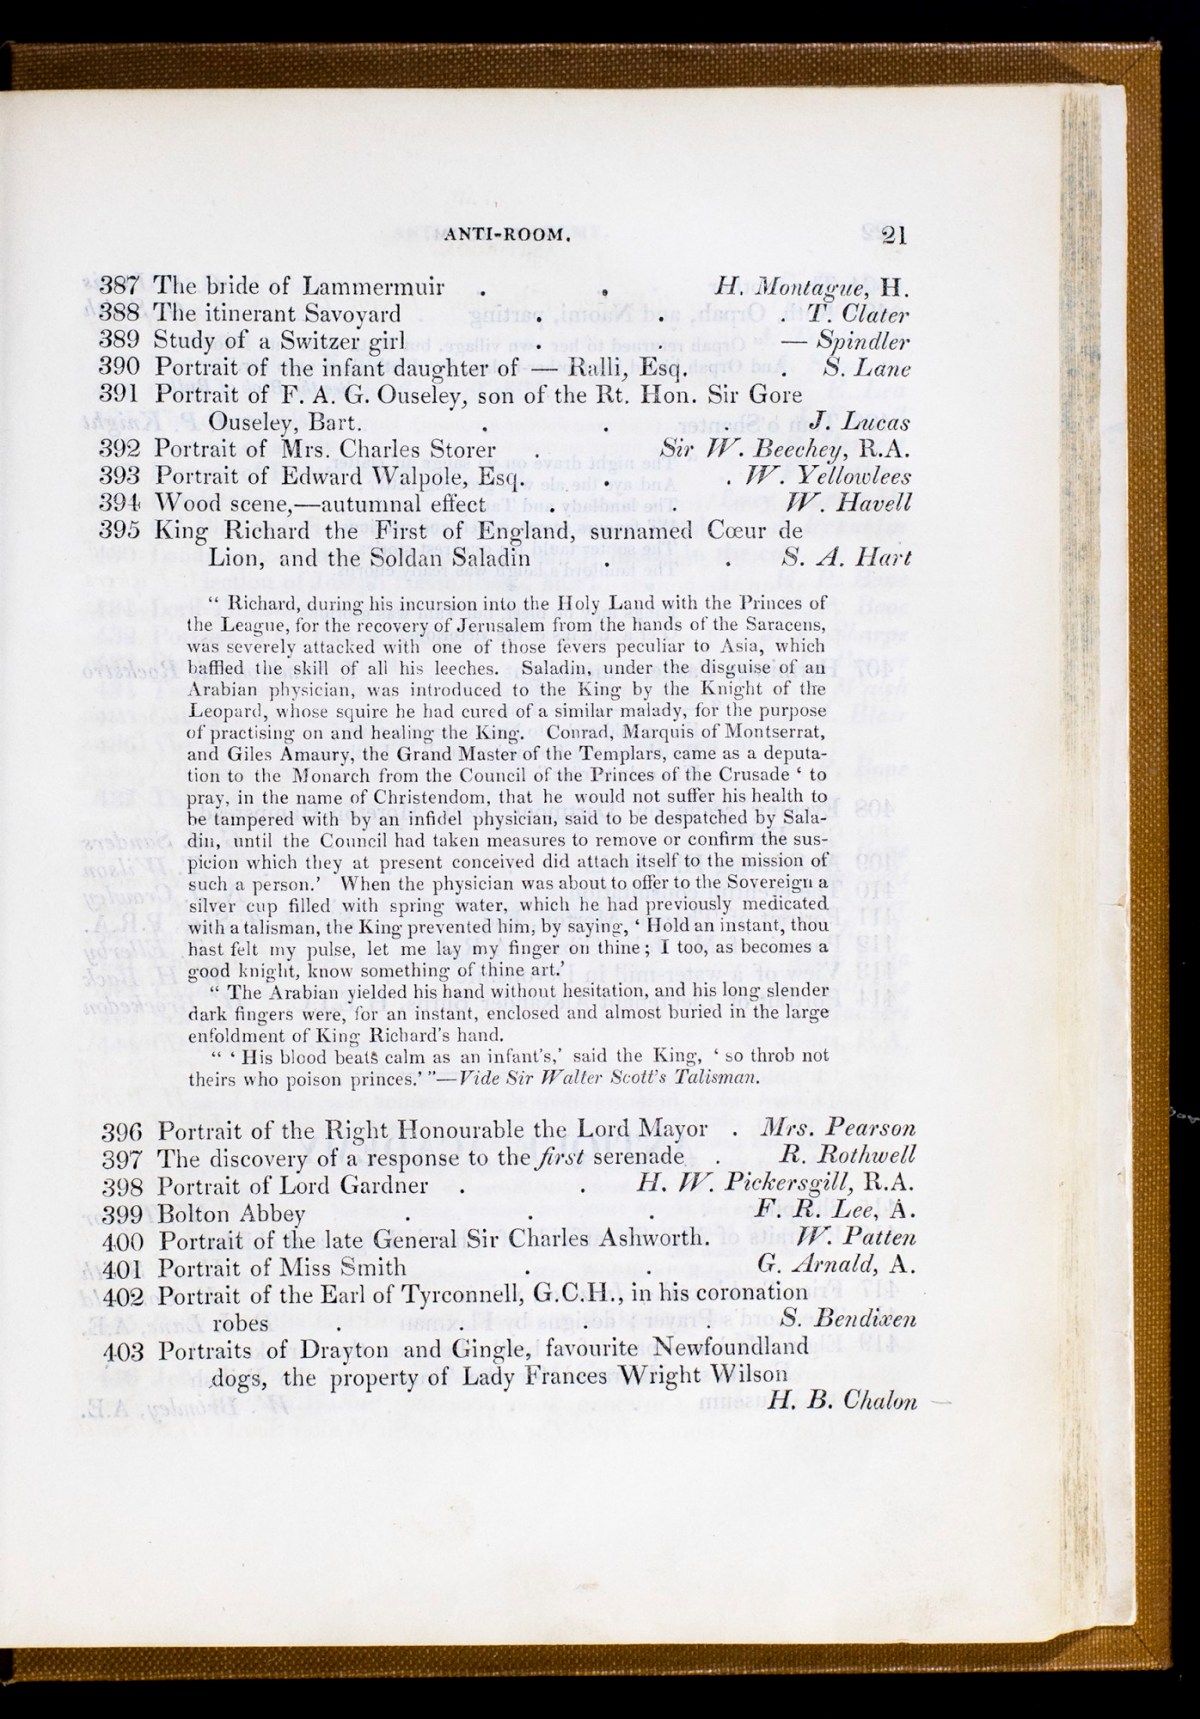 ANTI-ROOM. 21
387 The bride of Lammermuir . . H. Montague, H.
388 The itinerant Savoyard . . . T. Clater
389 Study of a Switzer girl . . — Spindler
390 Portrait of the infant daughter of — Ralli, Esq. . S. Lane
391 Portrait of F. A. G. Ouseley, son of the Rt. Hon. Sir Gore
Ouseley, Bart. . . . J. Lucas
392 Portrait of Mrs. Charles Storer . Sir W. Beechey, R.A.
393 Portrait of Edward Walpole, Esq. . . W. Yellowlees
394 Wood scene,—autumnal effect . . W. Havell
395 King Richard the First of England, surnamed Cœur de
Lion, and the Soldan Saladin . . S. A. Hart
“ Richard, during his incursion into the Holy Land with the Princes of
the League, for the recovery of Jerusalem from the hands of the Saracens,
was severely attacked with one of those fevers peculiar to Asia, which
baffled the skill of all his leeches. Saladin, under the disguise of an
Arabian physician, was introduced to the King by the Knight of the
Leopard, whose squire he had cured of a similar malady, for the purpose
of practising on and healing the King. Conrad, Marquis of Montserrat,
and Giles Amaury, the Grand Master of the Templars, came as a deputa-
tion to the Monarch from the Council of the Princes of the Crusade ‘ to
pray, in the name of Christendom, that he would not suffer his health to
be tampered with by an infidel physician, said to be despatched by Sala-
din, until the Council had taken measures to remove or confirm the sus-
picion which they at present conceived did attach itself to the mission of
such a person.’ When the physician was about to offer to the Sovereign a
silver cup filled with spring water, which he had previously medicated
with a talisman, the King prevented him, by saying, ‘ Hold an instant, thou
hast felt my pulse, let me lay my finger on thine; I too, as becomes a
good knight, know something of thine art.’
“ The Arabian yielded his hand without hesitation, and his long slender
dark fingers were, for an instant, enclosed and almost buried in the large
enfoldment of King Richard’s hand.
“ ‘ His blood beats calm as an infant’s,’ said the King, ‘ so throb not
theirs who poison princes.’ ”—Vide Sir Walter Scott’s Talisman.
396 Portrait of the Right Honourable the Lord Mayor . Mrs. Pearson
397 The discovery of a response to the first serenade . R. Rothwell
398 Portrait of Lord Gardner . . H. W. Pickersgill, R.A.
399 Bolton Abbey . . . F. R. Lee, A.
400 Portrait of the late General Sir Charles Ashworth. W. Patten
401 Portrait of Miss Smith . . G. Arnald, A.
402 Portrait of the Earl of Tyrconnell, G.C.H., in his coronation
robes . . . . S. Bendixen
403 Portraits of Drayton and Gingle, favourite Newfoundland
dogs, the property of Lady Frances Wright Wilson
H. B. Chalon